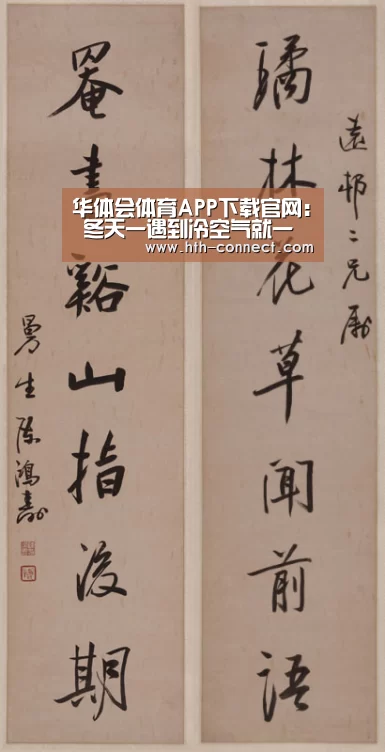 遠邨二兄屬
璚林花草聞前語
罨畫谿山指後期
曼生陳鴻壽
华体会体育APP下载官网:
冬天一遇到冷空气就一
www.hth-connect.com